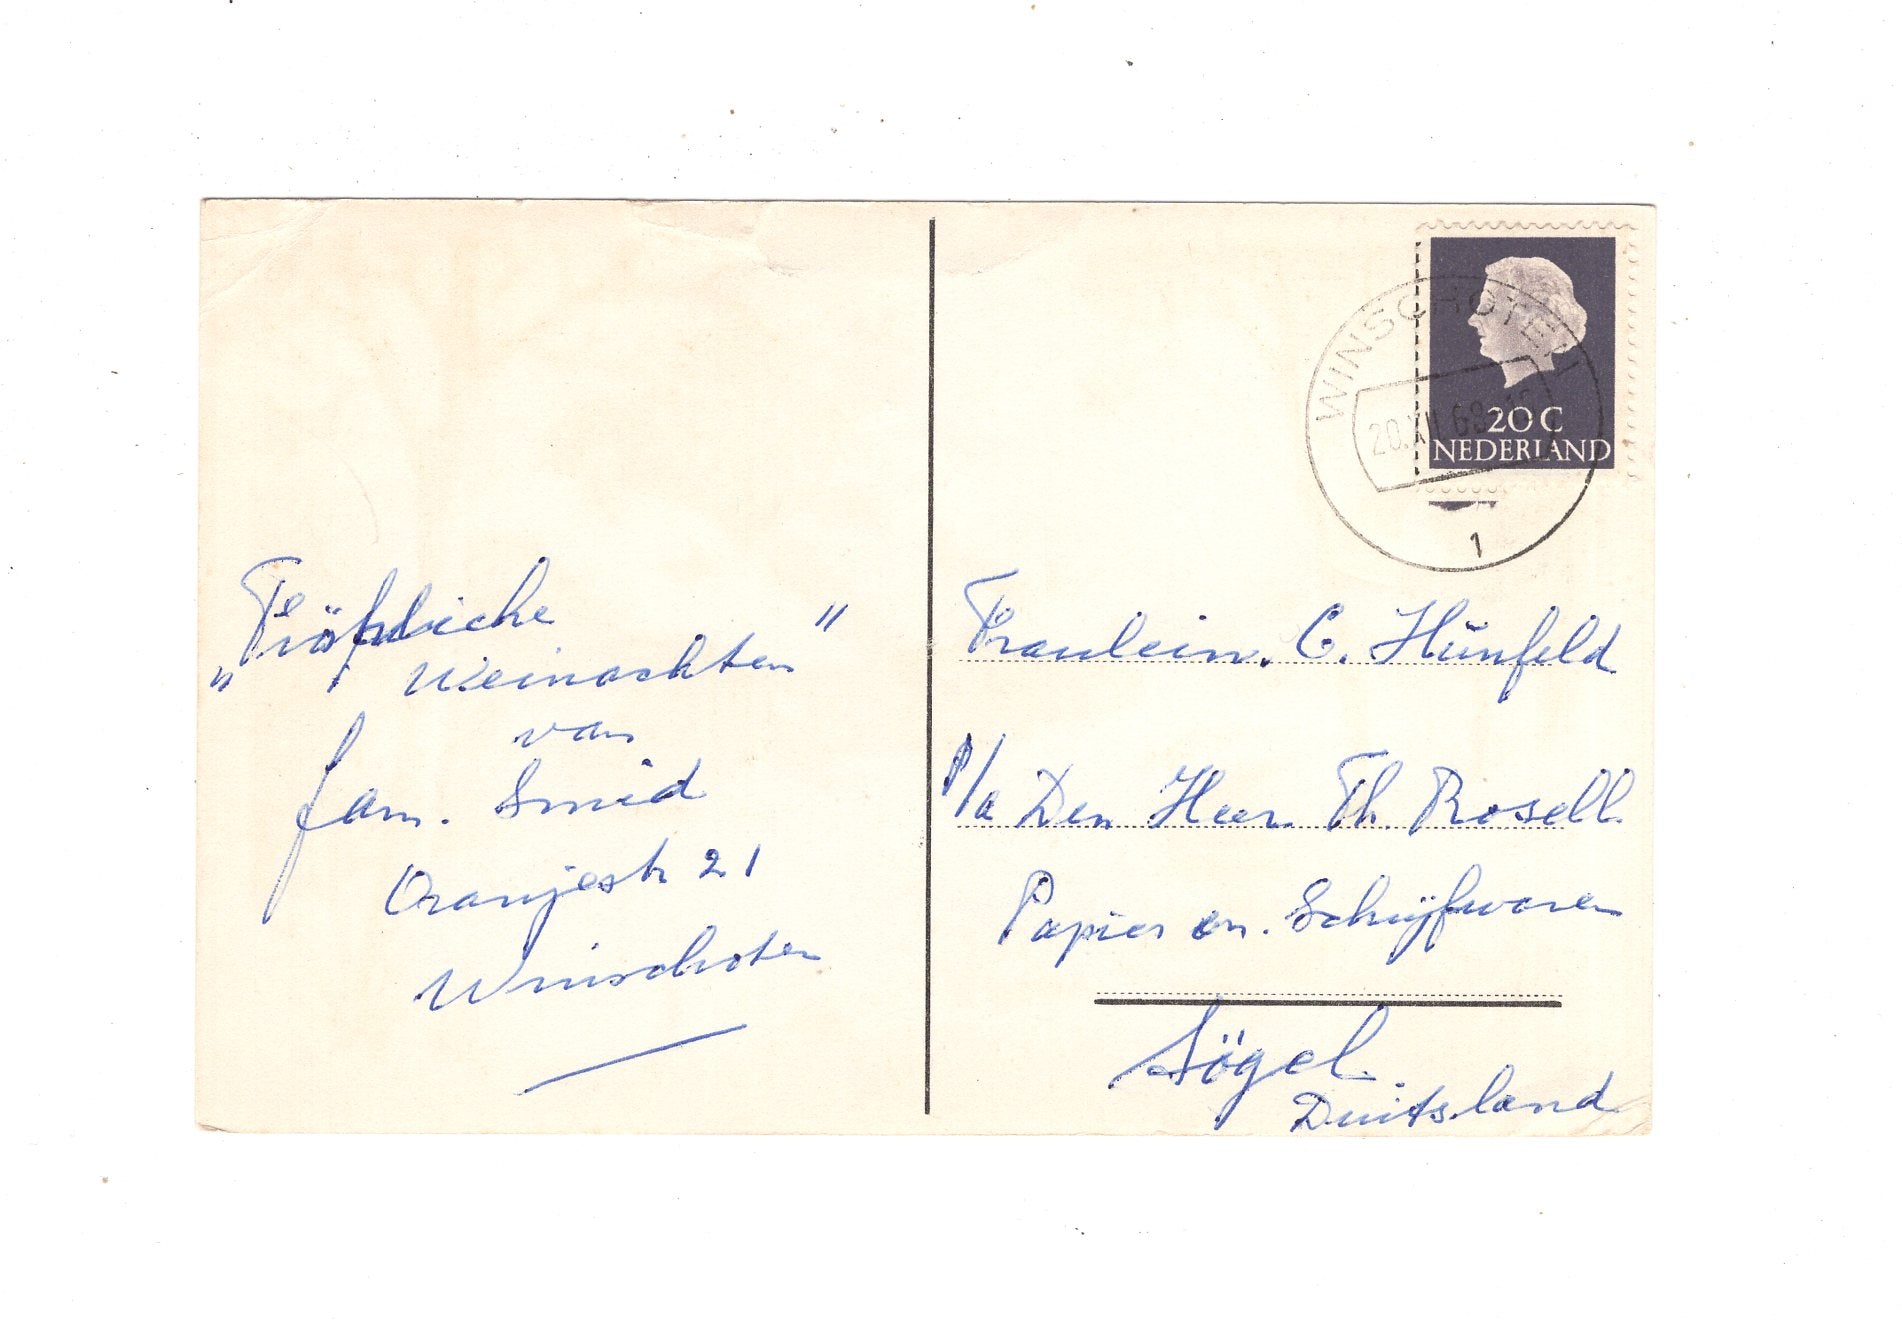 „Fröhliche
Weinachten"
van
fam. Smid
Oranjestr 21
Winschoten
WINSCHOTEN
20.XII 68
1
20 C
NEDERLAND
Fraulein. C. Hünfeld
P/a Den Heer Th. Rosell.
Papier en. Schrijfwaren
Sögel.
Duitsland